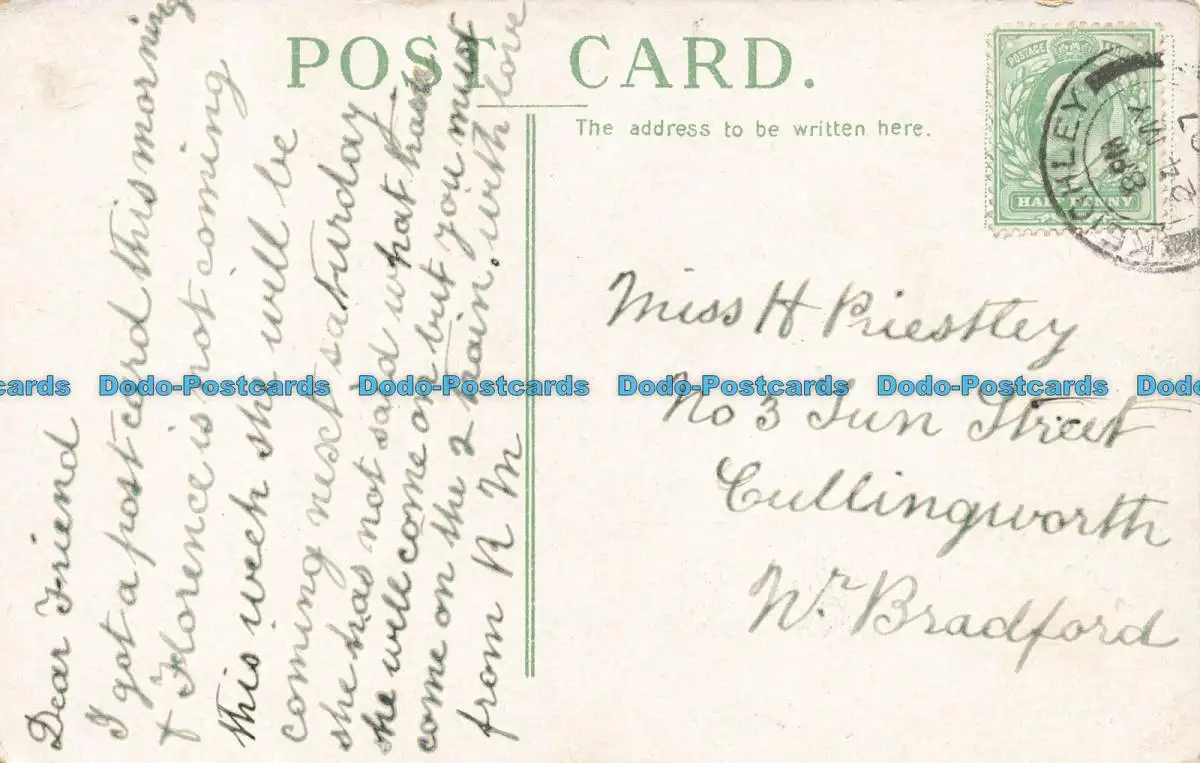 POST CARD.
The address to be written here.
POSTAGE
HALFPENNY
KEIGHLEY
8 PM
24 MY
07
Dear Friend
I got a post cerd this morning
& Florence is not coming
this week she will be
coming next saturday
she has not said what train
she will come on but you must
come on the 2 train. with love
from N M
Miss H Priestley
No 3 Sun Street
Cullingworth
Nr Bradford
Dodo-Postcards Dodo-Postcards Dodo-Postcards Dodo-Postcards Dodo-Postcards Dodo-Postcards